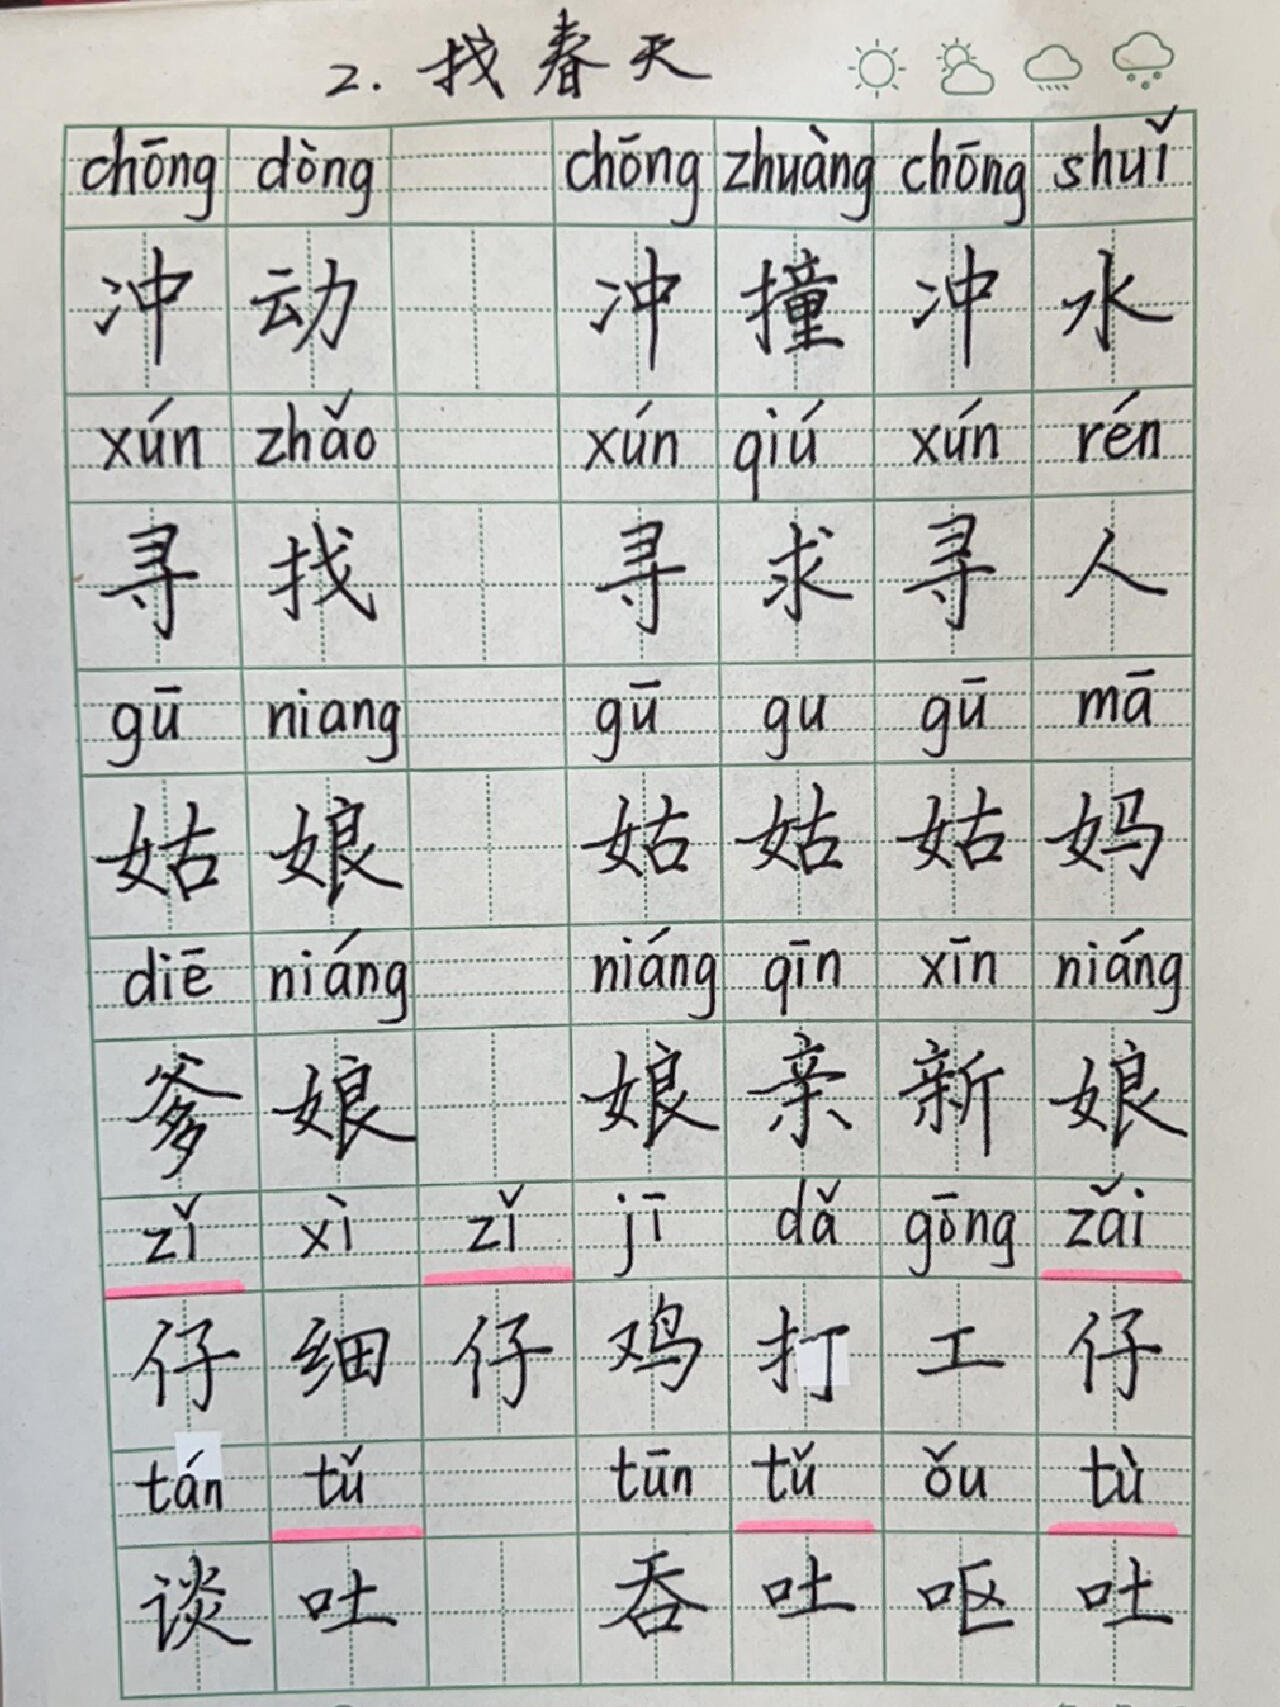 2. 找春天
chōng dòng chōng zhuàng chōng shuǐ
冲动 冲撞冲水
xún zhǎo xún qiú xún rén
寻找 寻求寻人
gū niang gū gu gū mā
姑娘 姑姑姑妈
diē niáng niáng qīn xīn niáng
爹娘 娘亲新娘
zǐ xì zǐ jī dǎ gōng zǎi
仔细仔鸡打工仔
tán tǔ tūn tǔ ǒu tù
谈吐 吞吐呕吐